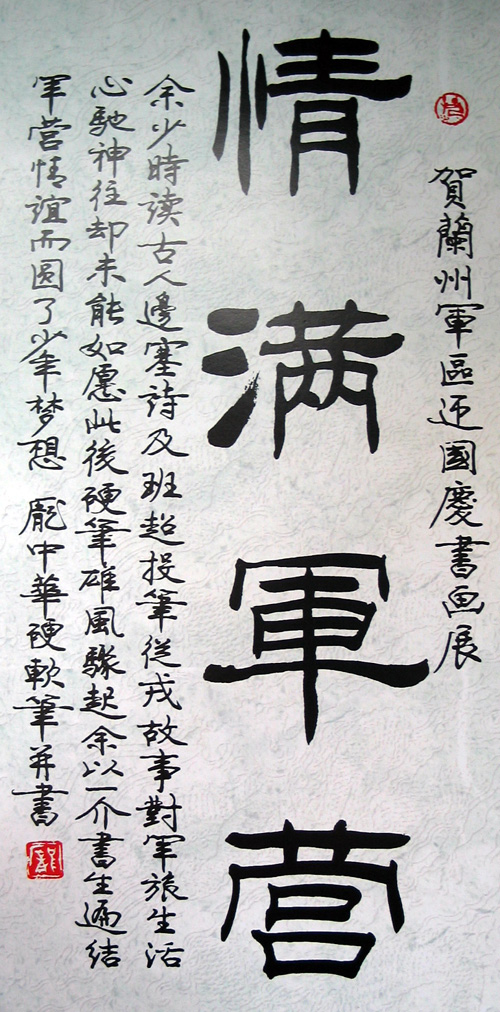 賀蘭州軍區迎國慶書画展
情满軍营
余少時读古人邊塞詩及班超投筆從戎故事對军旅生活
心馳神往却未能如愿此後硬筆雄風驟起余以一介書生遍结
军营情谊而圆了少年梦想 龐中華硬軟筆并書